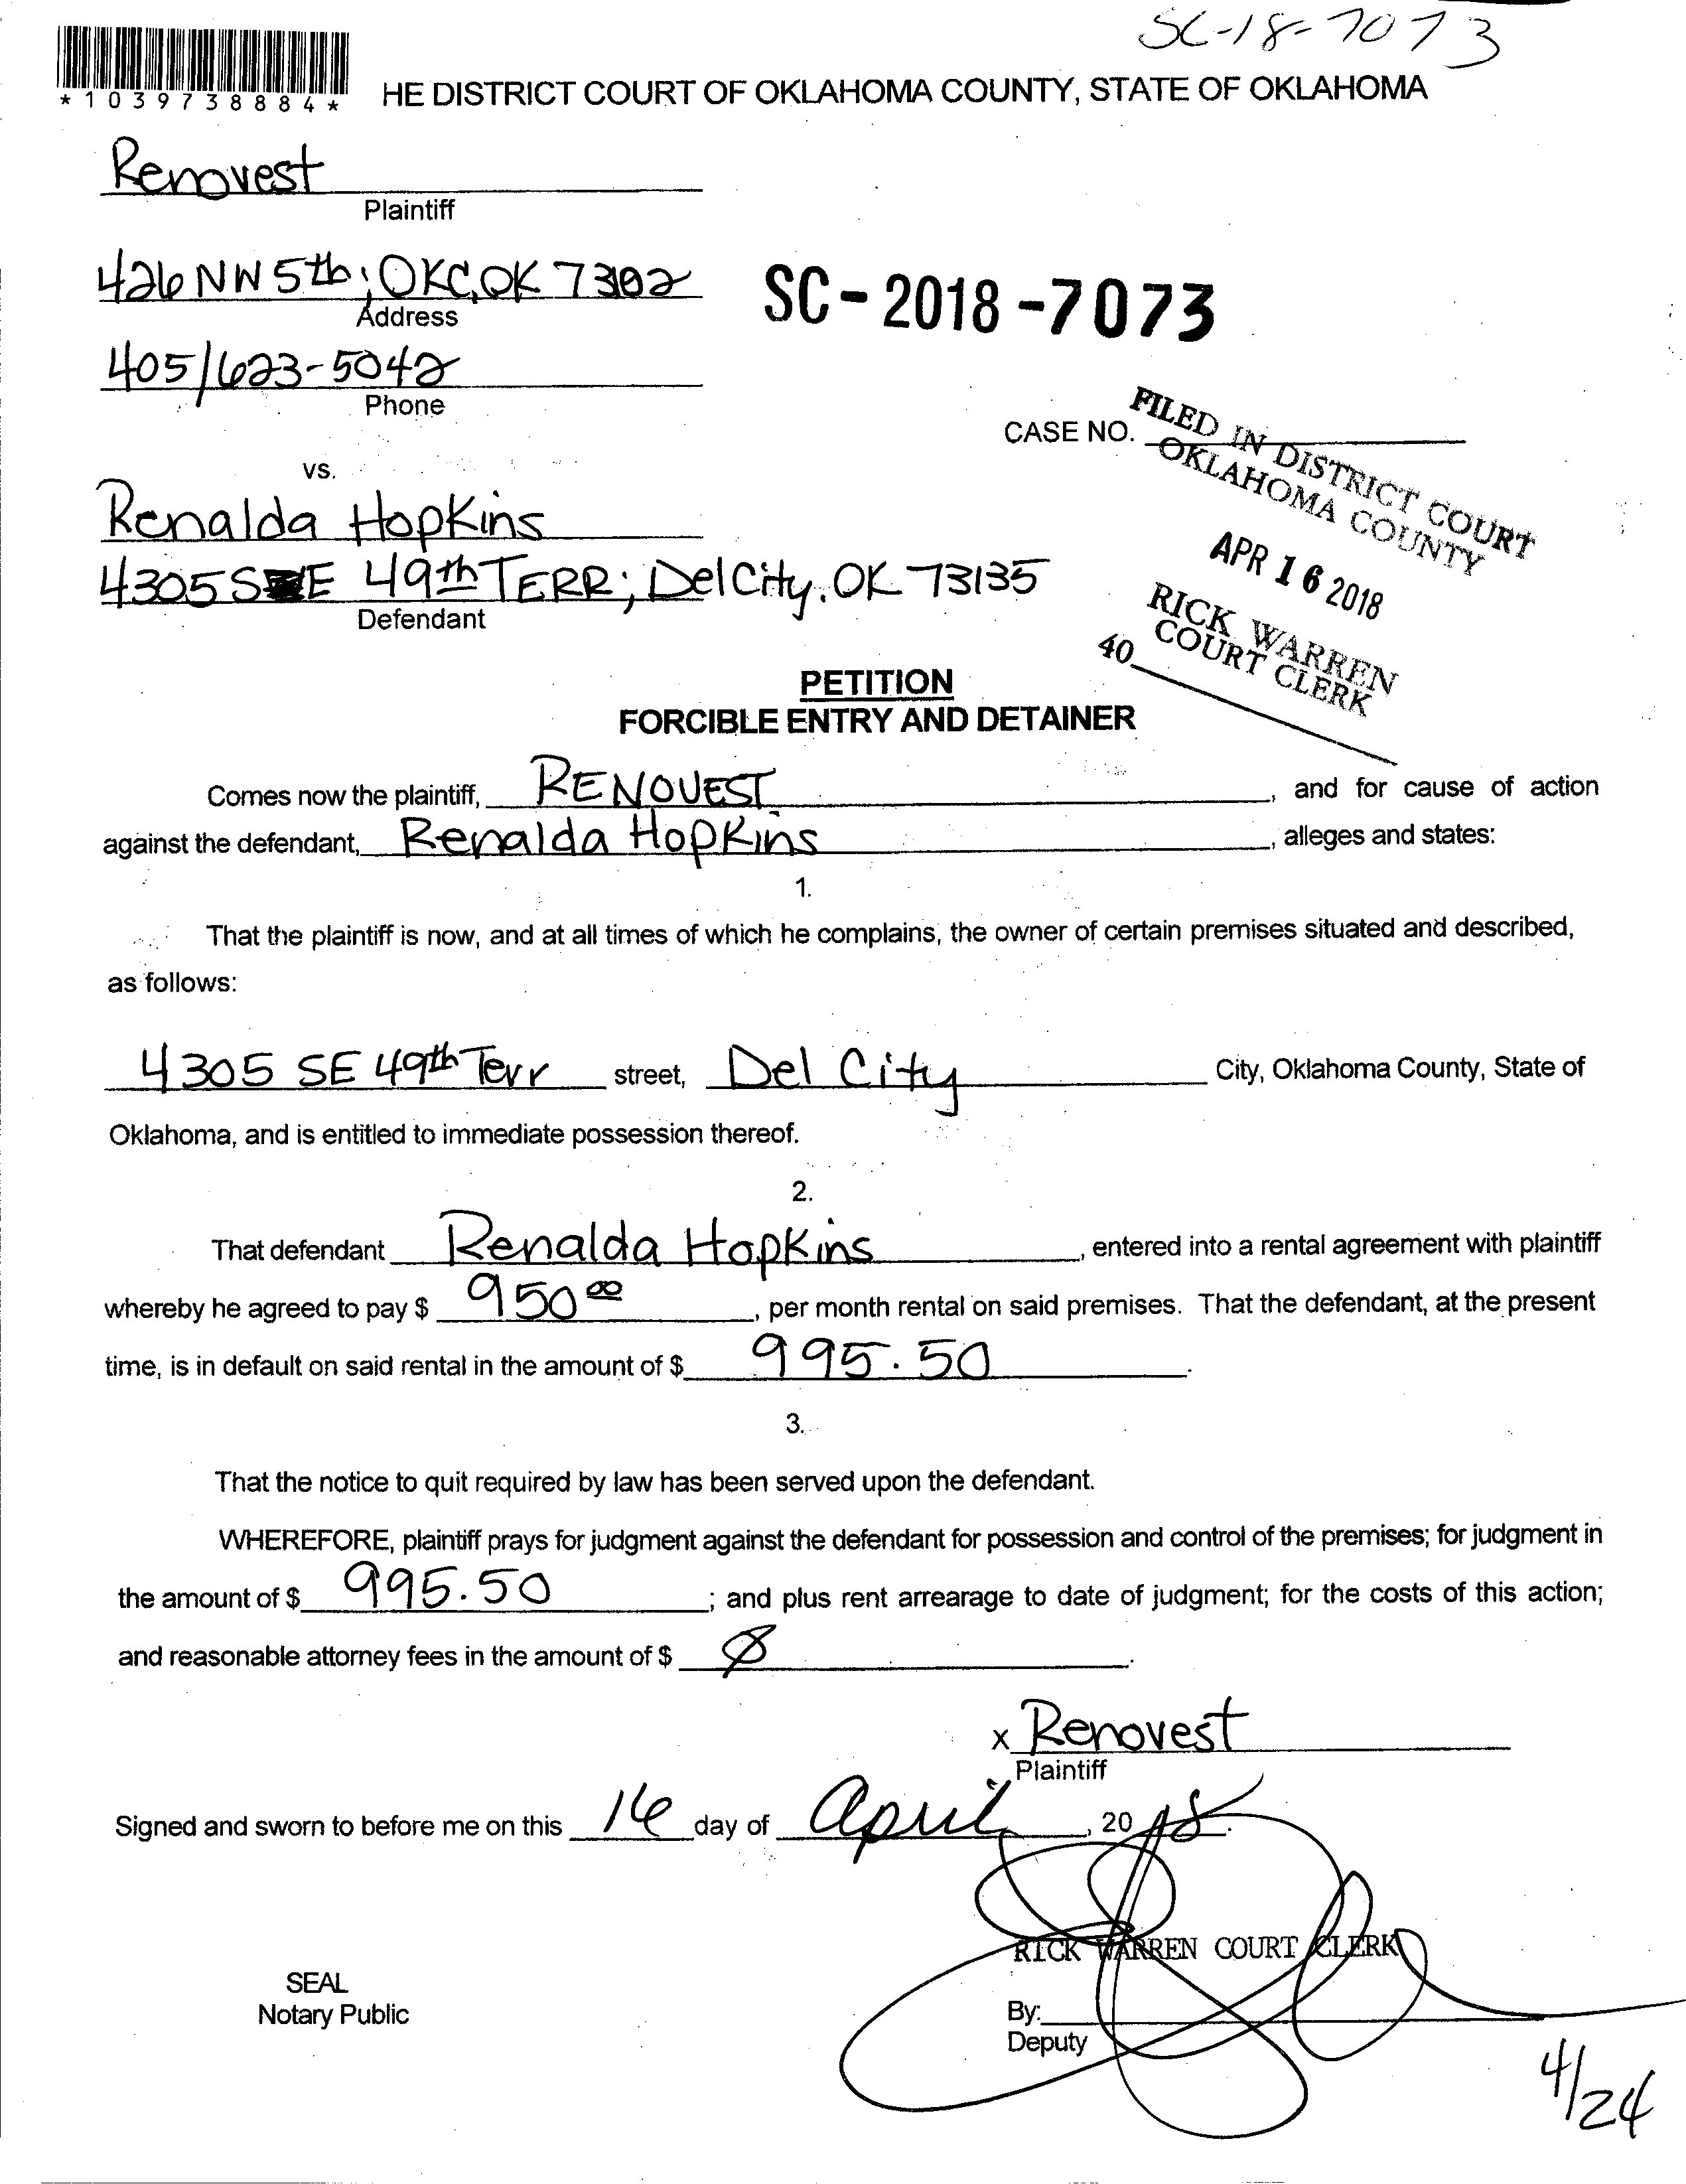 SC-18-7073
*1039738884*
HE DISTRICT COURT OF OKLAHOMA COUNTY, STATE OF OKLAHOMA
Renovest
Plaintiff
426 NW 5th; OKC, OK 73102
Address
SC-2018-7073
405/623-5042
Phone
CASE NO.
FILED IN DISTRICT COURT
OKLAHOMA COUNTY
APR 16 2018
RICK WARREN
COURT CLERK
40
vs.
Renalda Hopkins
4305 SE 49th TERR; Del City, OK 73135
Defendant
PETITION
FORCIBLE ENTRY AND DETAINER
Comes now the plaintiff, RENOVEST, and for cause of action
against the defendant, Renalda Hopkins, alleges and states:
1.
That the plaintiff is now, and at all times of which he complains, the owner of certain premises situated and described,
as follows:
4305 SE 49th Terr street, Del City City, Oklahoma County, State of
Oklahoma, and is entitled to immediate possession thereof.
2.
That defendant Renalda Hopkins, entered into a rental agreement with plaintiff
whereby he agreed to pay $ 950 00, per month rental on said premises. That the defendant, at the present
time, is in default on said rental in the amount of $ 995.50.
3.
That the notice to quit required by law has been served upon the defendant.
WHEREFORE, plaintiff prays for judgment against the defendant for possession and control of the premises; for judgment in
the amount of $ 995.50; and plus rent arrearage to date of judgment; for the costs of this action;
and reasonable attorney fees in the amount of $ Ø.
x Renovest
Plaintiff
Signed and sworn to before me on this 16 day of April, 2018.
RICK WARREN COURT CLERK
SEAL
Notary Public
By:
Deputy
4/24